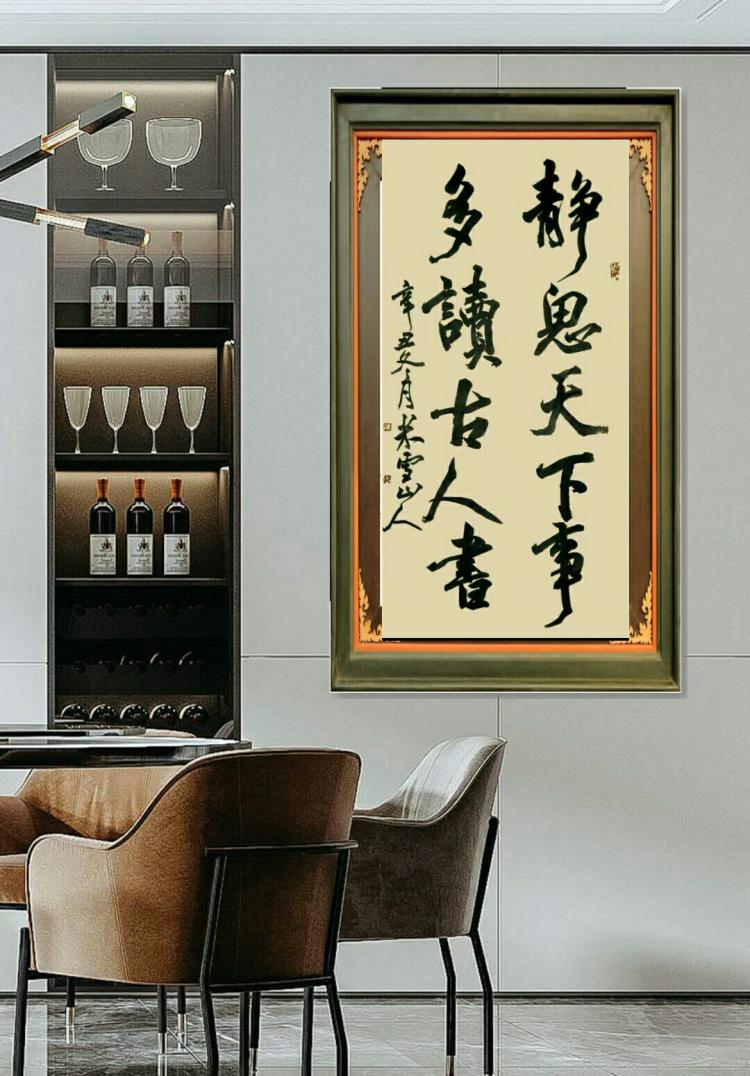 静思天下事
多讀古人書
辛丑冬月米雪山人